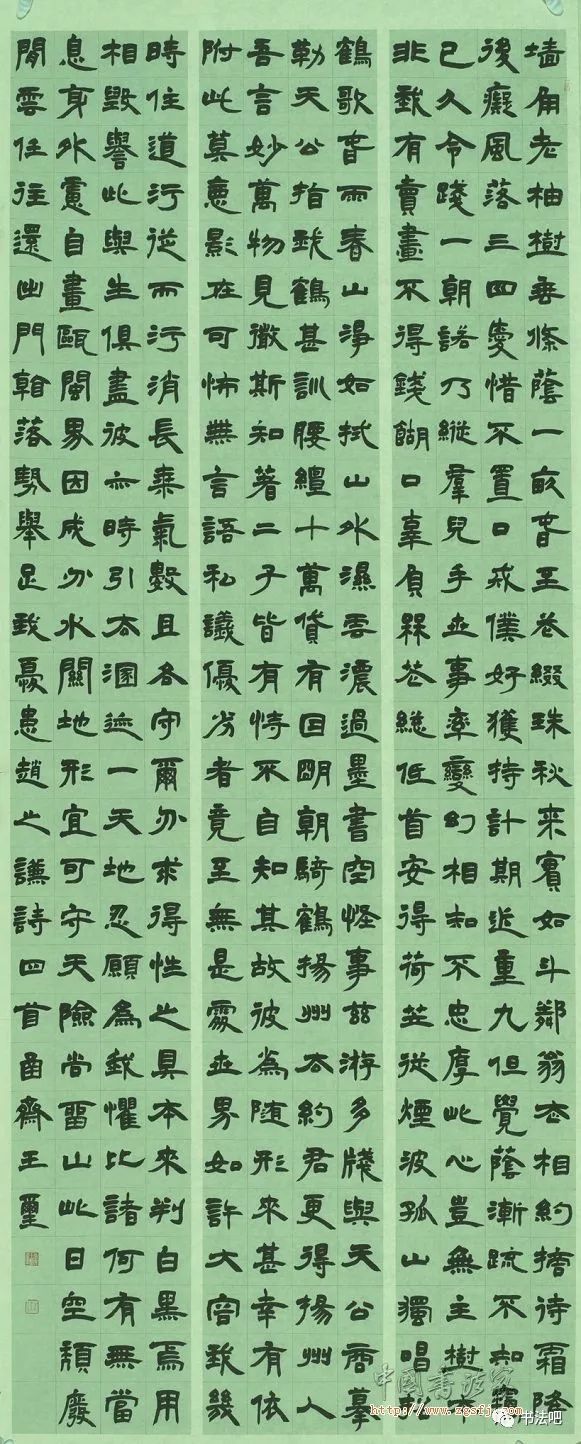 墻角老柚樹垂條蔭一畝春玉花綴珠秋來實如斗鄰翁去相約搭待霜降
後癡風落三四愛惜不置口戒僕好獲持計期近重九但覺蔭漸疏不知竊
已久令踐一朝諾乃縱羣兒手世事率變幻相知不忠厚此心豈無主樹
非我有賣畫不得錢餬口辜負槑花總低首安得荷芷從煙波孤山獨唱
鶴歌春雨春山淨如拭山外濕雲濃過墨書空怪事茲游多牋與天公商摹
勒天公指我鶴甚訓腰纏十萬貸有因明朝騎鶴揚州去約君更得揚州人
吾言妙萬物見微斯知著二子皆有恃不自知其故彼為隨形來甚幸有依
附此莫惡影在可怖無言語私議優劣者竟至無是處世界如許大容我幾
時住道行從而污消長乘氣數且各守爾勿求得性之具本來判白黑焉用
相毀譽此與生俱盡彼亦時引去溷迹一天地忍願為我懼比諸何有無當
息身外慮自畫甌閩界因成分水關地形宜可守天險尚留山此日空頹廢
閒雲任往還出門落勢舉足我憂患趙之謙詩四首齋王璽
中國書法家
http://www.zgsfj.com
书法吧